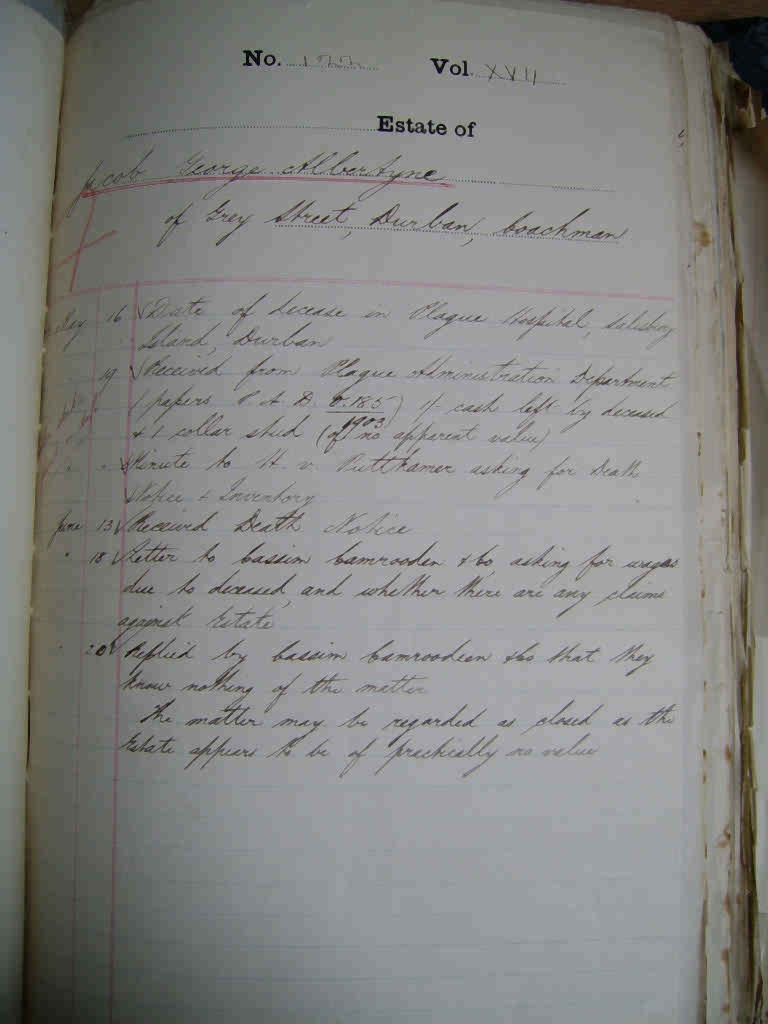 No. 122 Vol. XVII
Estate of
Jacob George Albertyne
of Grey Street, Durban, Coachman
May 16 Date of decease in Plague Hospital, Salisbury
Island, Durban
19 Received from Plague Administration Department
papers P. A. D. 185/1903) 1/- cash left by deceased
& 1 collar stud (of no apparent value)
" Minute to H. v. Puttkamer asking for Death
Notice & Inventory
June 13 Received Death Notice
" 18 Letter to Cassim Camrooden & Co, asking for wages
due to deceased, and whether there are any claims
against Estate
" 20 Replied by Cassim Camroodeen & Co that they
know nothing of the matter
The matter may be regarded as closed as the
Estate appears to be of practically no value